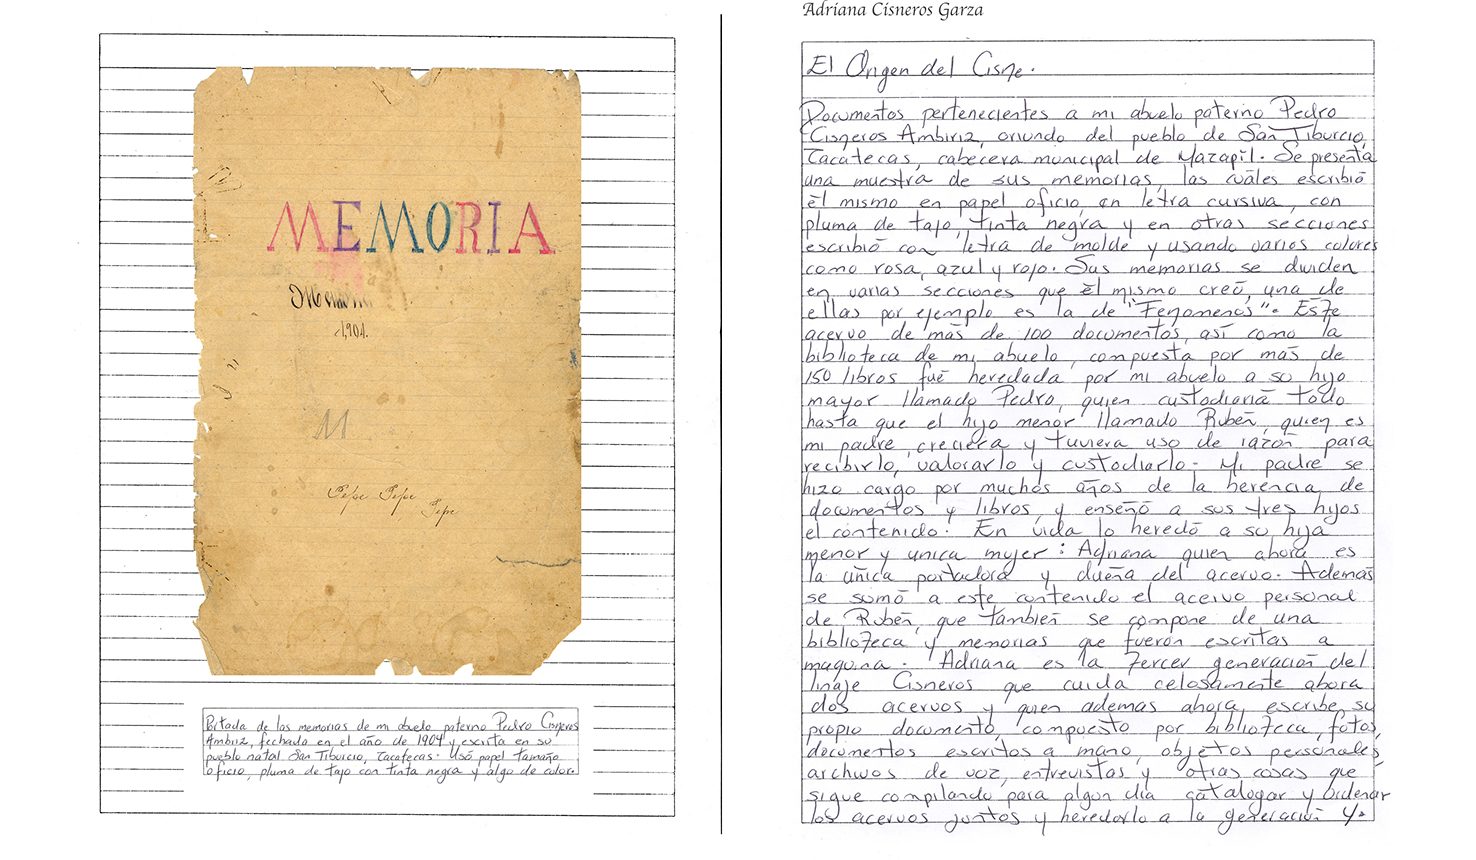 MEMORIA
Memoria
1,904.
M
Pepe Pepe
Pepe
Portada de las memorias de mi abuelo paterno Pedro Cisneros
Ambriz, fechada en el año de 1904 y escrita en su
pueblo natal San Tiburcio, Zacatecas. Usó papel tamaño
oficio, pluma de tajo con tinta negra y algo de color.
Adriana Cisneros Garza
El Origen del Cisne.
Documentos pertenecientes a mi abuelo paterno Pedro
Cisneros Ambriz, oriundo del pueblo de San Tiburcio,
Zacatecas, cabecera municipal de Mazapil. Se presenta
una muestra de sus memorias, las cuáles escribió
él mismo en papel oficio, en letra cursiva, con
pluma de tajo, tinta negra y en otras secciones
escribió con letra de molde y usando varios colores
como rosa, azul y rojo. Sus memorias se dividen
en varias secciones que él mismo creó, una de
ellas por ejemplo es la de "Fenomenos". Este
acervo de más de 100 documentos, así como la
biblioteca de mi abuelo, compuesta por más de
150 libros fué heredada por mi abuelo a su hijo
mayor llamado Pedro, quien custodiaría todo
hasta que el hijo menor llamado Rubén, quien es
mi padre, creciera y tuviera uso de razón para
recibirlo, valorarlo y custodiarlo. Mi padre se
hizo cargo por muchos años de la herencia de
documentos y libros, y enseñó a sus tres hijos
el contenido. En vida lo heredó a su hija
menor y unica mujer: Adriana quien ahora es
la única portadora y dueña del acervo. Además
se sumó a este contenido el acervo personal
de Rubén, que también se compone de una
biblioteca y memorias que fueron escritas a
maquina. Adriana es la tercer generación del
linaje Cisneros que cuida celosamente ahora
dos acervos y quien ademas ahora escribe su
propio documento, compuesto por biblioteca, fotos,
documentos escritos a mano, objetos personales,
archivos de voz, entrevistas y otras cosas que
sigue compilando para algun día catalogar y ordenar
los acervos juntos y heredarlo a la generación 4.